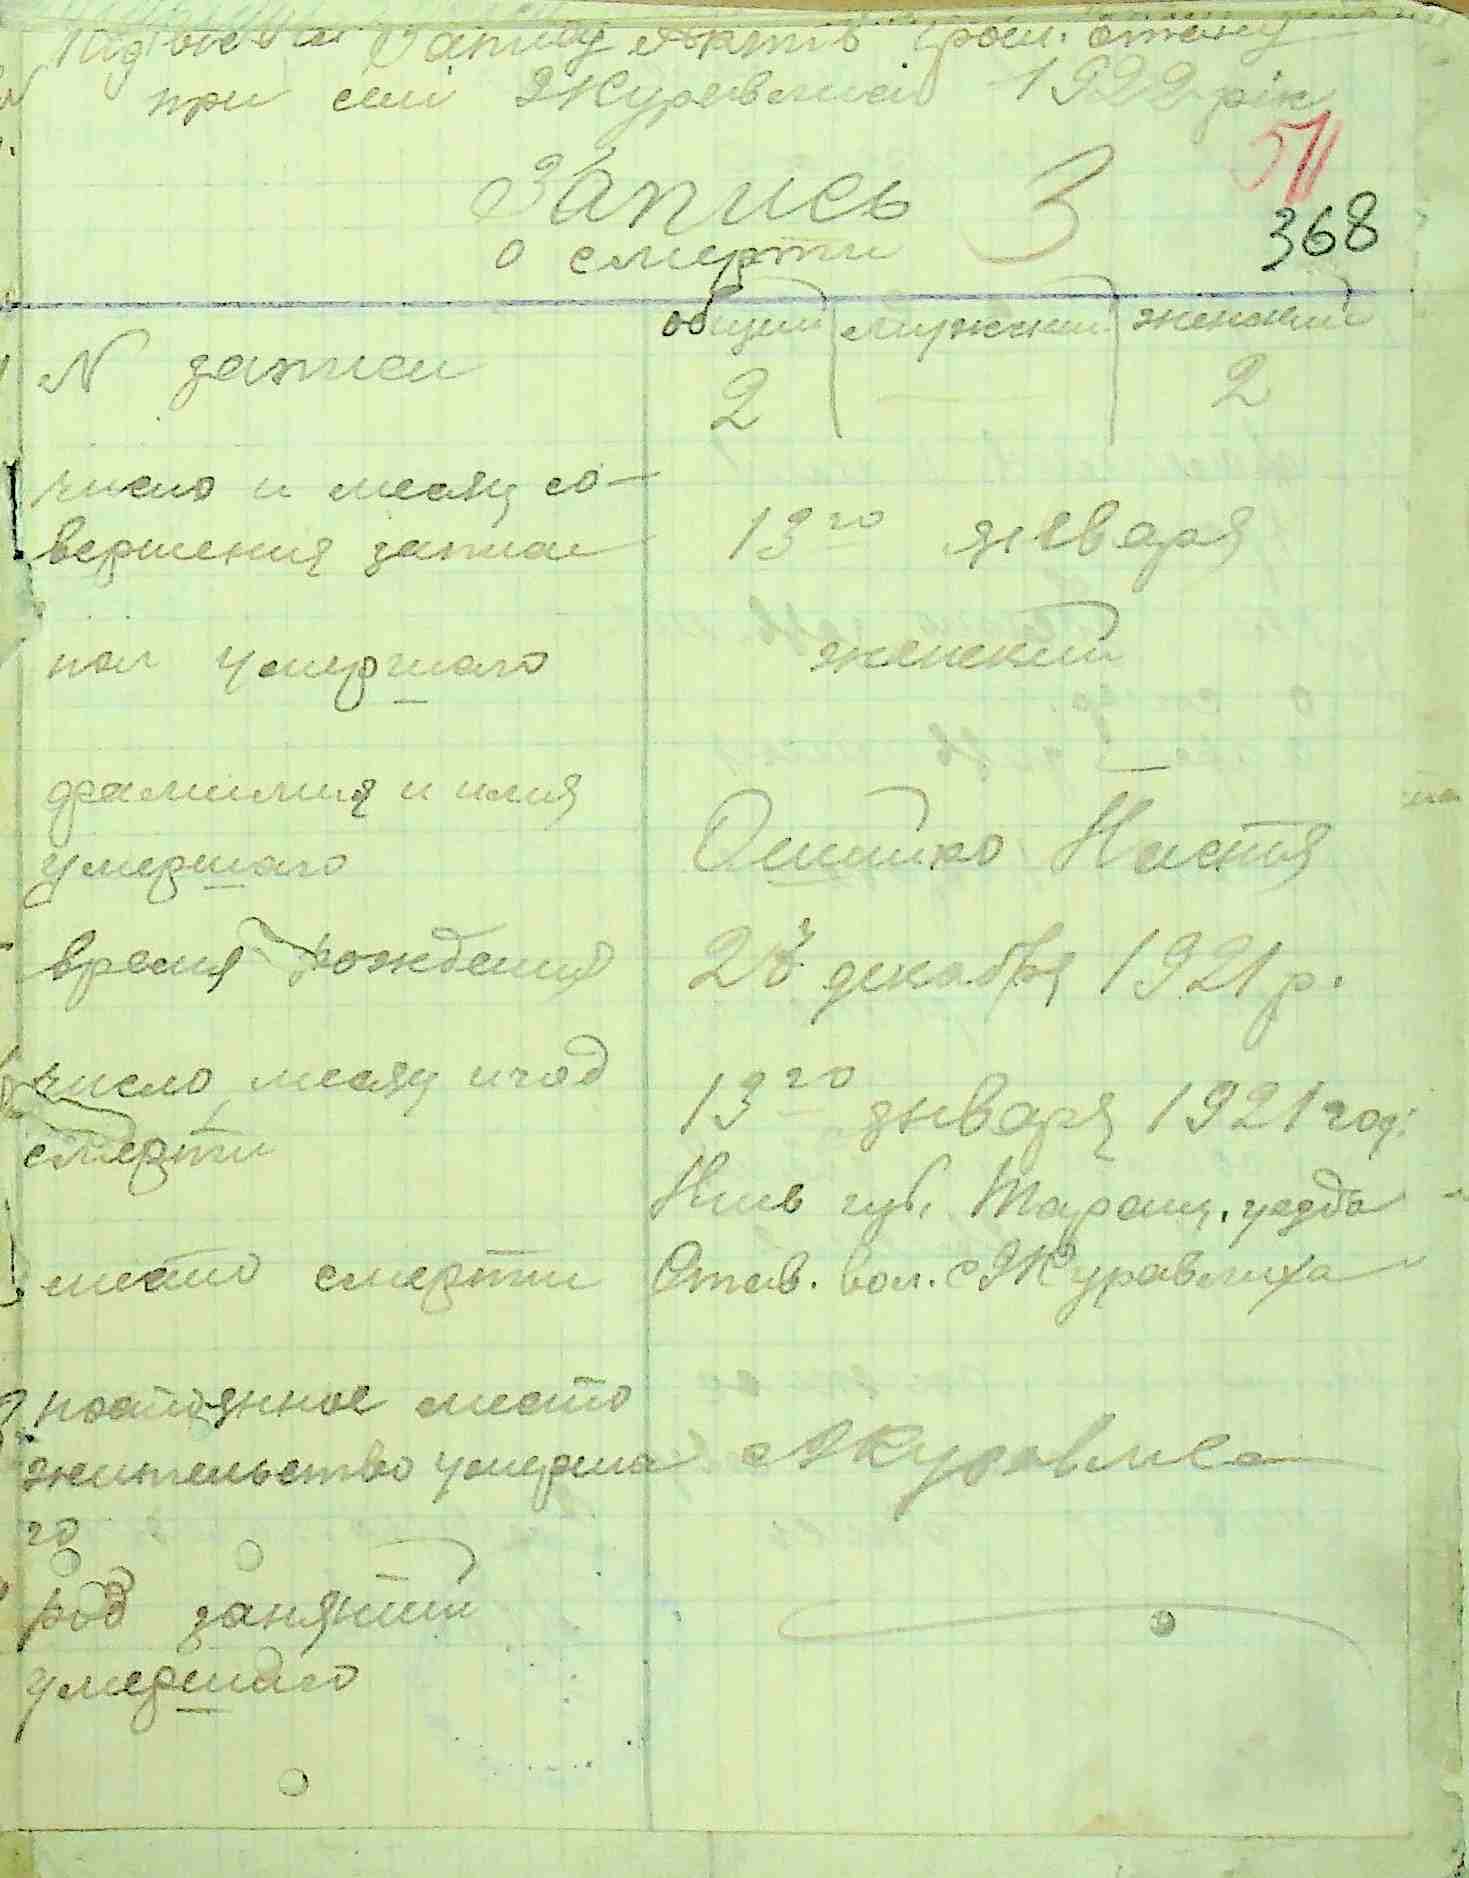 Запису Актів Гром. Стану
при селі Журавлисі 1922 рік
511
Запись 3
368
о смерти
общий мужский женский
N записи 2 — 2
число и месяц со-
вершения записи 13го января
пол умершаго женский
фамилия и имя
умершаго Ошийко Настя
время рождения декабря 1921 р.
число, месяц и год
смерти 13го января 1921 год.
Киев губ. Таращ. уезда
место смерти Став. вол. с Журавлиха
постоянное место
жительство умерша с Журавлиха
го
род занятий
умершаго